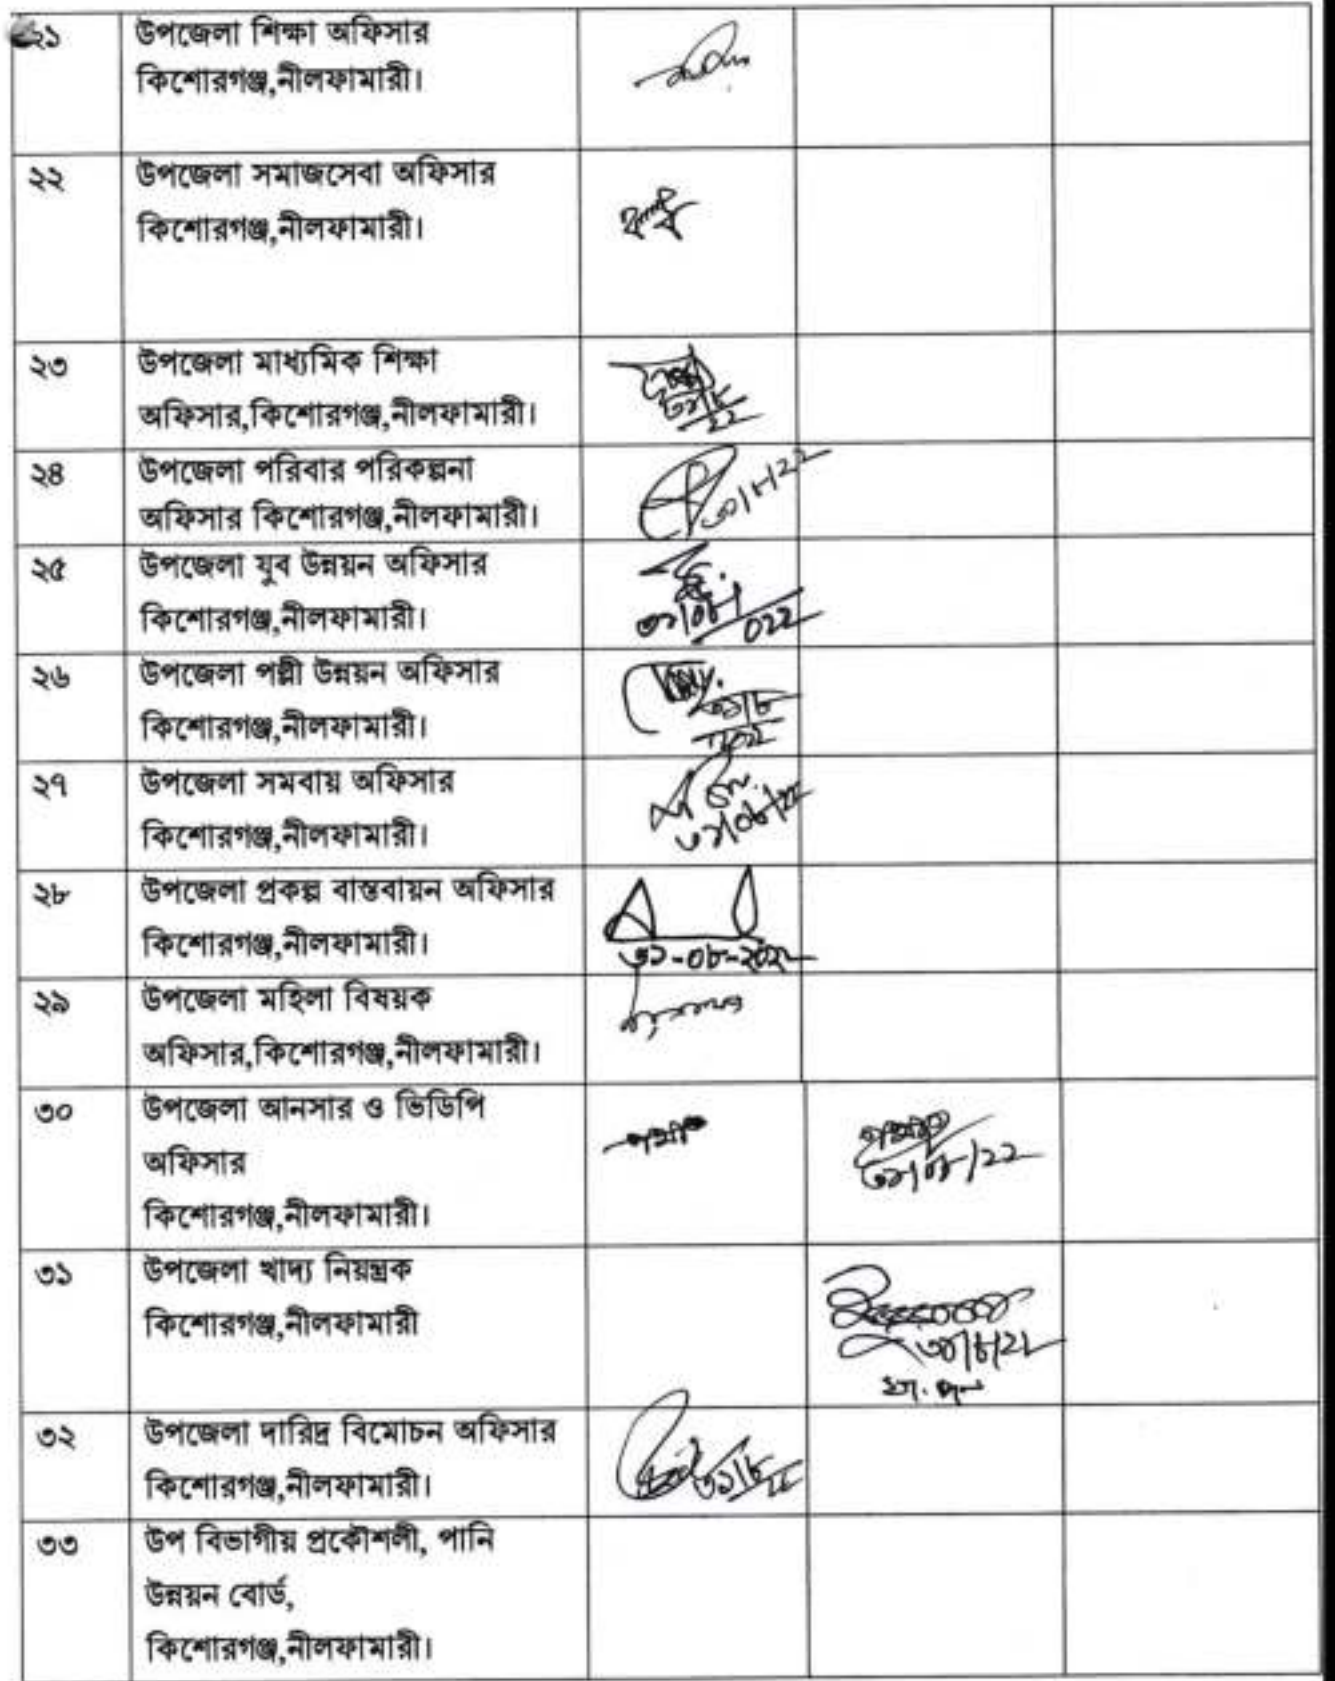 ২১
উপজেলা শিক্ষা অফিসার
কিশোরগঞ্জ,নীলফামারী।
২২
উপজেলা সমাজসেবা অফিসার
কিশোরগঞ্জ,নীলফামারী।
২৩
উপজেলা মাধ্যমিক শিক্ষা
অফিসার,কিশোরগঞ্জ,নীলফামারী।
৩১/৮
২২
২৪
উপজেলা পরিবার পরিকল্পনা
অফিসার কিশোরগঞ্জ,নীলফামারী।
৩১/৮/২২
২৫
উপজেলা যুব উন্নয়ন অফিসার
কিশোরগঞ্জ,নীলফামারী।
৩১/০৮/
০২২
২৬
উপজেলা পল্লী উন্নয়ন অফিসার
কিশোরগঞ্জ,নীলফামারী।
৩১/৮
২৭
উপজেলা সমবায় অফিসার
কিশোরগঞ্জ,নীলফামারী।
৩১/০৮/২২
২৮
উপজেলা প্রকল্প বাস্তবায়ন অফিসার
কিশোরগঞ্জ,নীলফামারী।
৩১-০৮-২০২২
২৯
উপজেলা মহিলা বিষয়ক
অফিসার,কিশোরগঞ্জ,নীলফামারী।
৩০
উপজেলা আনসার ও ভিডিপি
অফিসার
কিশোরগঞ্জ,নীলফামারী।
৩১/০৮/২২
৩১
উপজেলা খাদ্য নিয়ন্ত্রক
কিশোরগঞ্জ,নীলফামারী
৩১/৮/২২
৩২
উপজেলা দারিদ্র বিমোচন অফিসার
কিশোরগঞ্জ,নীলফামারী।
৩১/৮
২২
৩৩
উপ বিভাগীয় প্রকৌশলী, পানি
উন্নয়ন বোর্ড,
কিশোরগঞ্জ,নীলফামারী।